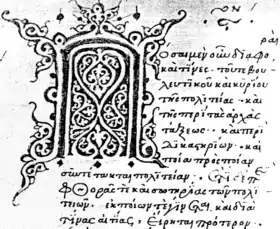 ραὶ
όσαι μὲν οὖν διαφο
καὶ τίνες· τοῦ τε βου
λευτικοῦ καὶ κυρίου
τῆς πολιτείας· καὶ
τῆς περὶ τὰς ἀρχὰς
τάξεως· καὶ περὶ
δικαστηρίων· καὶ
ποία πρὸς ποίαν
συντέτακται πολιτείαν· ἔτι δὲ περὶ
φθορᾶς τε καὶ σωτηρίας τῶν πολι
τειῶν. ἐκ ποίων τε γίνεται καὶ διὰ
τίνας αἰτίας, εἴρηται πρότερον.